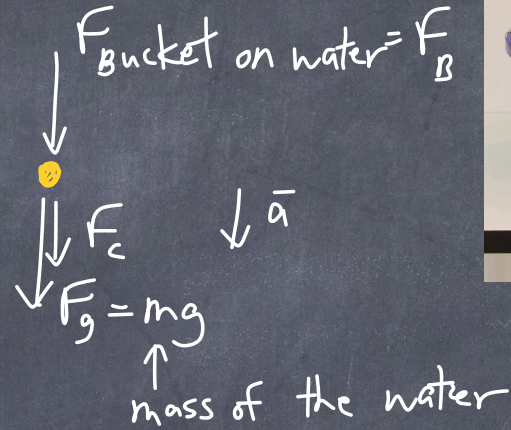 F Bucket on water = F B
F c
a̅
F g = mg
mass of the water